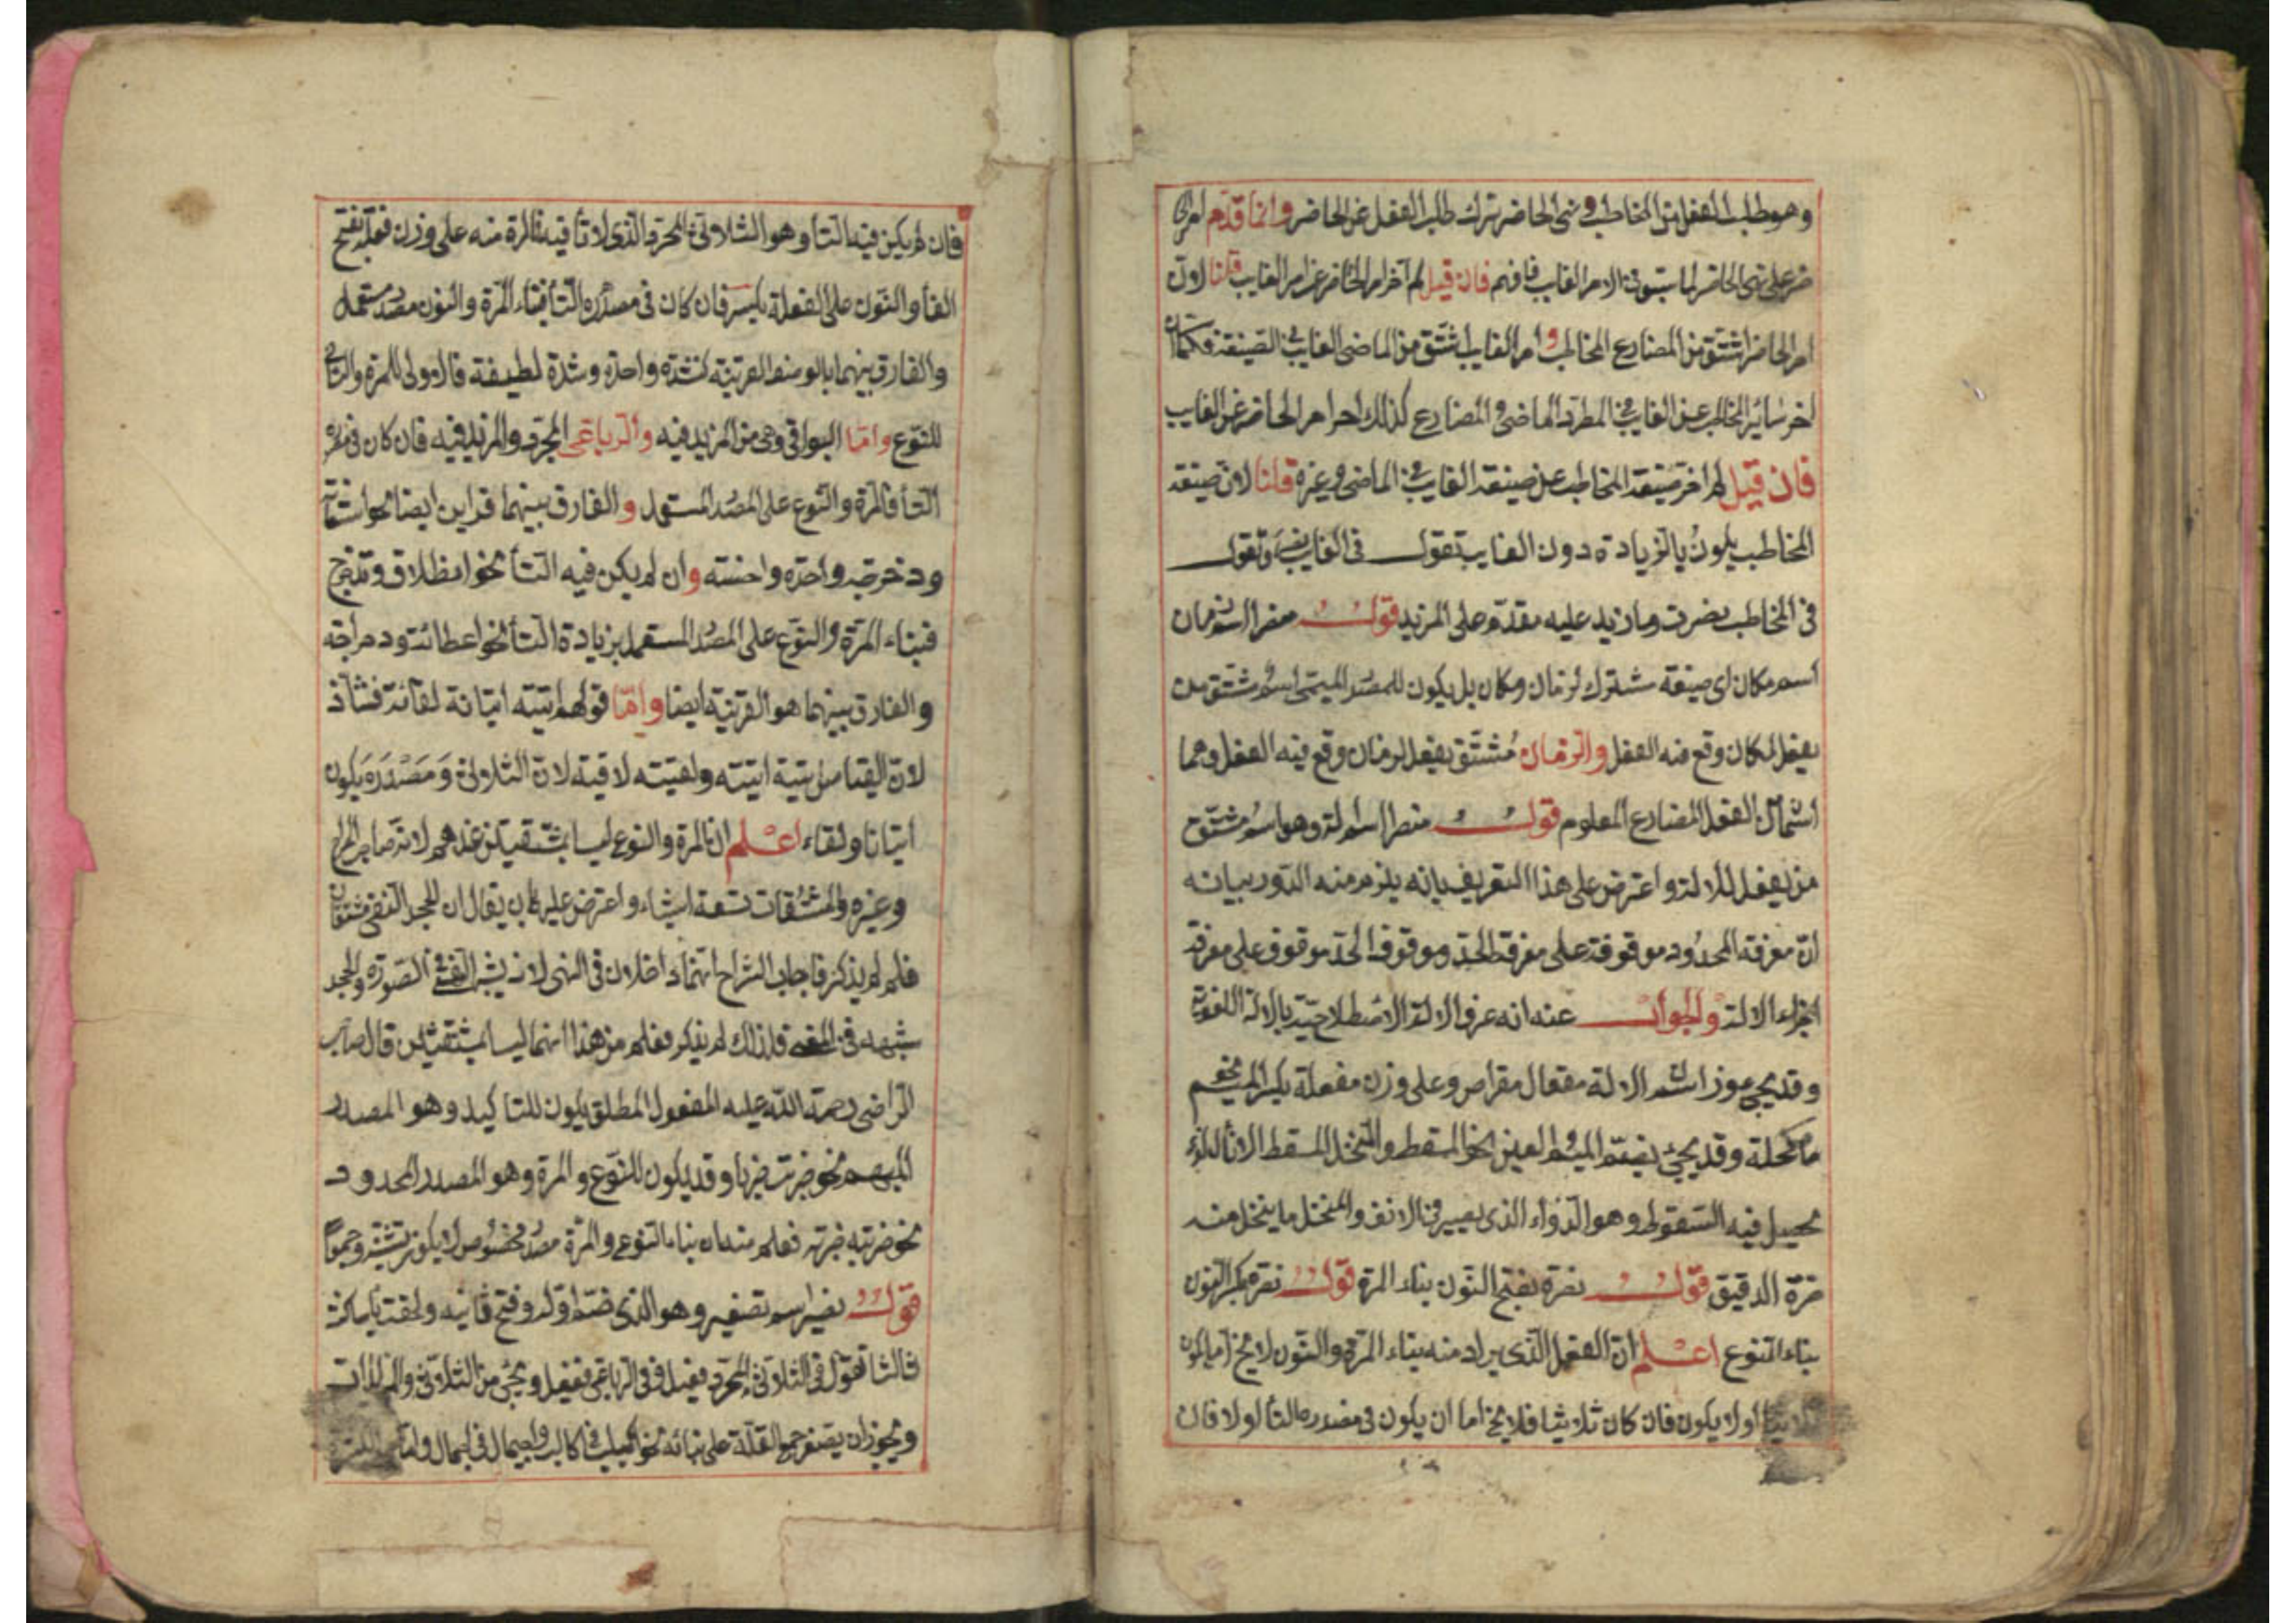 وهو طلب الفعل من المخاطب ونهى الحاضر ترك طلب الفعل عن الحاضر وانما قدم امر الحا
ضر على نهى الحاضر لما سبق فى الامر الغايب فافهم فان قيل لم اخر امر الحاضر عن امر الغايب قلنا لان
امر الحاضر اشتق من المضارع المخاطب و امر الغايب اشتق من الماضى الغايب فى الصيغة فكما ان
اخر سائر المخاطب عن الغايب فى المطرد الماضى و المضارع كذلك اخر امر الحاضر عن الغايب
فان قيل لم اخر صيغة المخاطب عن صيغة الغايب فى الماضى و غيره قلنا لان صيغة
المخاطب يكون بالزيادة دون الغايب تقول فى الغايب وتقول
فى المخاطب نصرت وما زيد عليه مقدم على المزيد قوله منصر اسم زمان
اسم مكان اى صيغة مشترك لزمان ومكان بل يكون للمصدر الميمى اسم مشتق من
يفعل لمكان وقع فيه الفعل والزمان مشتق يفعل لزمان وقع فيه الفعل وهما
الفعل المضارع المعلوم قوله منصر اسم الة وهو اسم مشتق
من يفعل للالة واعترض على هذا التعريف بانه يلزم منه الدور بيانه
ان معرفة المحدود موقوفة على معرفة الحد وموقوف الحد موقوف على معرفة
اجزاء الالة والجواب عنه انه عرف الالة الاصطلاحية بالالة اللغوية
وقد يجئ اسم الالة مفعال مقراض وعلى وزن مفعلة بكسر الميم نحو
مكحلة وقد يجئ بضم الميم و العين نحو المسقط والمنخل المسقط الاناء الذى
يحصل فيه السقوط وهو الدواء الذى يصير فى الانف والمنخل ما ينخل منه
الدقيق قوله نصرة بفتح النون بناء المرة قوله نصرة بكسر النون
بناء النوع اعلم ان الفعل الذى يراد منه بناء المرة والنون لا يخ اما يكون
ثلاثيا اولا يكون فان كان ثلاثيا فلا يخ اما ان يكون فى مصدره التأ اولا فان
فان لم يكن فيه التأ وهو الثلاثى المجرد الذى لا تأ فيه فالمرة منه على وزن فعلة بفتح
الفأ والنون على الفعلة بكسر فان كان فى مصدره التأ فبناء المرة والنون مصدر مستعمل
والفارق بينهما بالوصف القرينة كنشدة واحدة ونشدة لطيفة فالاولى للمرة والثانى
للنوع واما البواقى وهى من المزيد فيه والرباعى المجرد والمزيد فيه فان كان فى مصدره
التأ فالمرة والنوع على المصدر المستعمل و الفارق بينهما قراين ايضا نحو استقامة
ودحرجة واحدة واحسنه وان لم يكن فيه التأ نحو انطلاق وتدحرج
فبناء المرة والنوع على المصدر المستعمل بزيادة التأ نحو اعطائة ودحراجة
والفارق بينهما هو القرينة ايضا واما قولهم اتيته اتيانة لقائة فشاذ
لان القياس اتيته اتية ولقيته لقية لان الثلاثى ومصدره يكون
اتيانا ولقاء اعلم ان المرة والنوع ليسا بمشتقين عندهم لانه
وغيره والمشتقات تسعة اشياء واعترض عليه بان يقال ان الجحد النفى مشتقان
فلم لم يذكر فاجاب الشراح انهما داخلان فى النهى لانه يشبه النفى فى الصورة والجحد
شبهه فى المعنى فلذلك لم يذكر فعلم من هذا انهما ليسا بمشتقين قال صاحب
الراضى رحمة الله عليه المفعول المطلق يكون للتاكيد وهو المصدر
المبهم نحو ضربت ضربا وقد يكون للنوع والمرة وهو المصدر المحدود
نحو ضربته ضربة فعلم منه ان بناء النوع والمرة مصدر مخصوص لا يكون
قوله نصير اسم تصغير وهو الذى ضم اوله وفتح ثانيه ولحقت ياساكنة
ثالثا تقول فى الثلاثى المجرد فعيل وفى الرباعى فعيعل ويجئ من الثلاثى
ويجوز ان يصغر جمع القلة على بنائه نحو اكيلب فى اكلب واجيمال فى اجمال واما